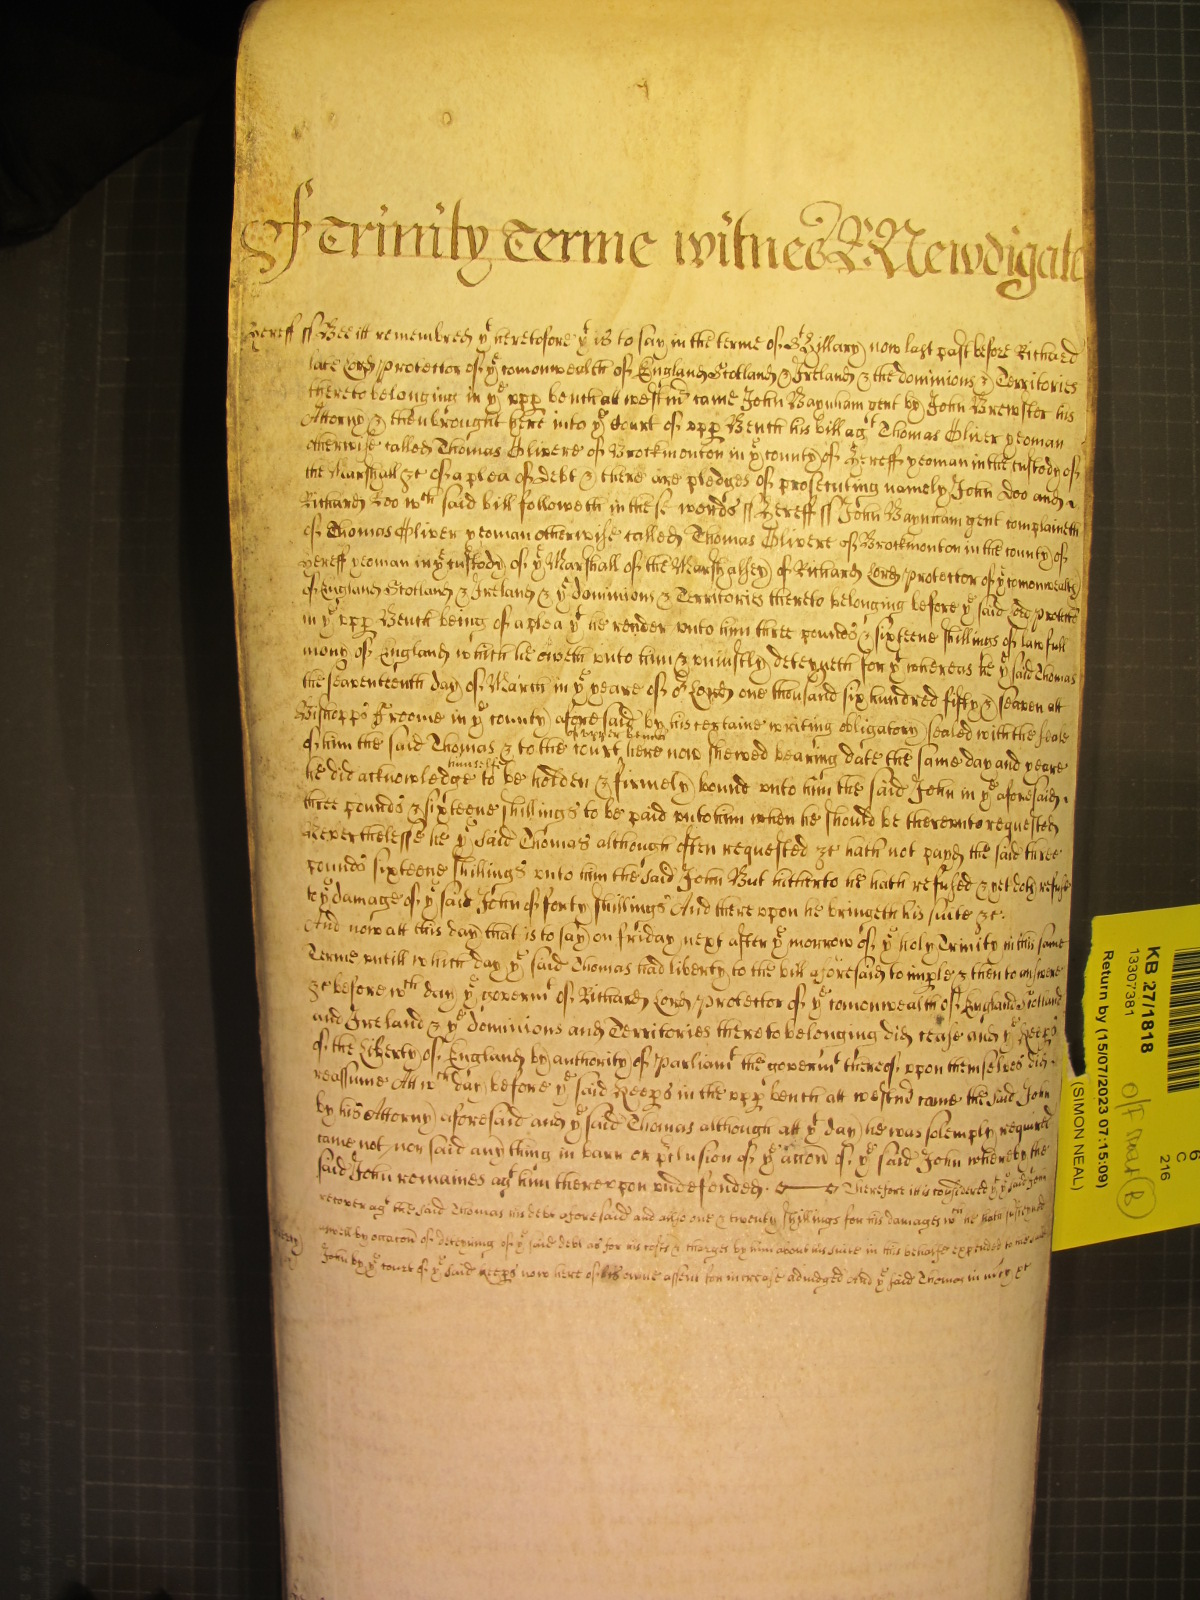 Of Trinity Terme witnes R Newdigate
Hereff ss Bee itt remembred yt heretofore yt is to say in the terme of St Hillary now last past before Richard
late Lord Protector of ye comonwealth of England Scotland & Ireland & the dominions & Territories
thereto belonging in ye upp bench att westmr came John Baynham gent by John Brewster his
Attorny & then brought here into ye Court of upp Bench his bill agt Thomas Oliver yeoman
otherwise called Thomas Olivere of Brockmonton in ye county of Hereff yeoman in the custody of
the Marshall &c of a plea of debt & there are pledges of prosecuting namely John Doo and
Richard Roo wch said bill followeth in these words ss Hereff ss John Baynham gent complaineth
of Thomas Oliver yeoman otherwise called Thomas Olivere of Brockmonton in the county of
Hereff yeoman in ye custody of ye Marshall of the Marshalsey of Richard Lord Protector of ye comonwealth
of England Scotland & Ireland & ye dominions & Territories thereto belonging before ye said Lord Protector
in ye upp Bench being of a plea yt he render unto him three pounds & sixteene shillings of lawfull
mony of England which he oweth unto him & uniustly deteyneth for yt whereas he ye said Thomas
the seaventeenth day of March in ye yeare of or Lord one thousand six hundred fifty & seaven att
Bishopps Froome in ye county aforesaid by his certaine writing obligatory sealed with the seale
of him the said Thomas & to the court of upper bench here now shewed bearing date the same day and yeare
he did acknowledge himselfe to be holden & firmely bound unto him the said John in ye aforesaid
three pounds & sixteene shillings to be paid unto him when he should be thereunto requested
Neverthelesse he ye said Thomas although often requested &c hath not payd the said three
pounds sixteene shillings unto him the said John But hitherto he hath refused & yet doth refuse
to ye damage of ye said John of forty shillings And thereupon he bringeth his suite &c.
And now att this day that is to say on friday next after ye morrow of ye holy Trinity in this same
Terme untill which day ye said Thomas had liberty to the bill aforesaid to imple & then to answere
&c before wch day ye governmt of Richard Lord Protector of ye comonwealth of England Scotland
and Ireland & ye dominions and Territories thereto belonging did cease and ye Keeps
of the Liberty of England by authority of Parliamt the governmt thereof upon themselves did
reassume Att wch day before ye said Keeps in the upp bench att westmr came the said John
by his Attorny aforesaid and ye said Thomas although att yt day he was solemply required
came not nor said any thing in barr or pclusion of ye accon of ye said John whereby the
said John remaines agt him thereupon undefended. Therefore itt is considered yt ye said John
recover agt the said Thomas his debt aforesaid and alsoe one & twenty shillings for his damages wch he hath susteyned
aswell by occacon of deteyning of ye said debt as for his costs & charges by him about his suite in this behalfe expended to the said
John by ye court of ye said Keeps now here of his owne assent for increase adiudged And ye said Thomas in mercy &c
KB 27/1818
13307381
Return by (15/07/2023 07:15:09)
(SIMON NEAL)
6
C
216